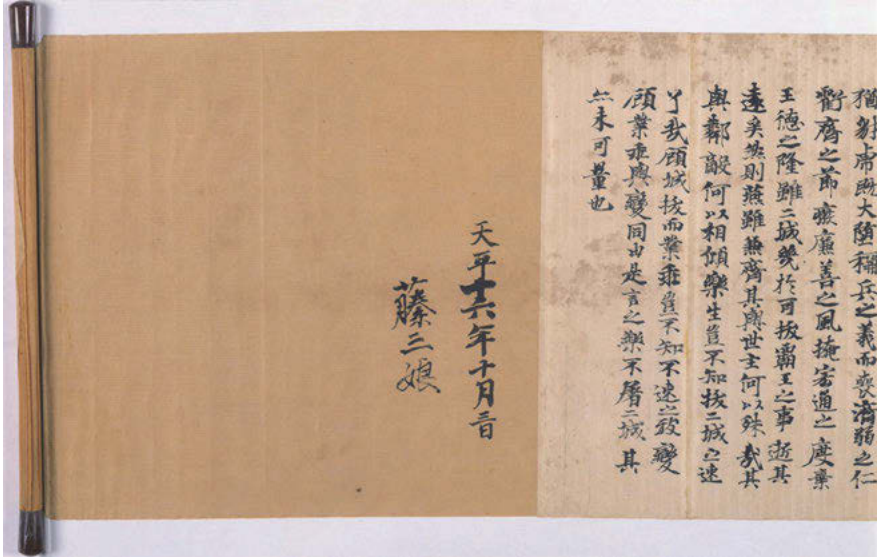 猶豺虎既大墮稱兵之義而喪濟弱之仁
虧齊之節廢廉善之風掩宏通之度棄
王德之隆雖二城幾於可拔霸王之事逝其
遠矣然則燕雖兼齊其與世主何以殊哉其
與鄰敵何以相傾樂生豈不知拔二城之速
了哉顧城拔而業乖豈不知不速之致變
顧業乖與變同由是言之樂不屠二城其
亦未可量也
天平十六年十月三日
藤三娘